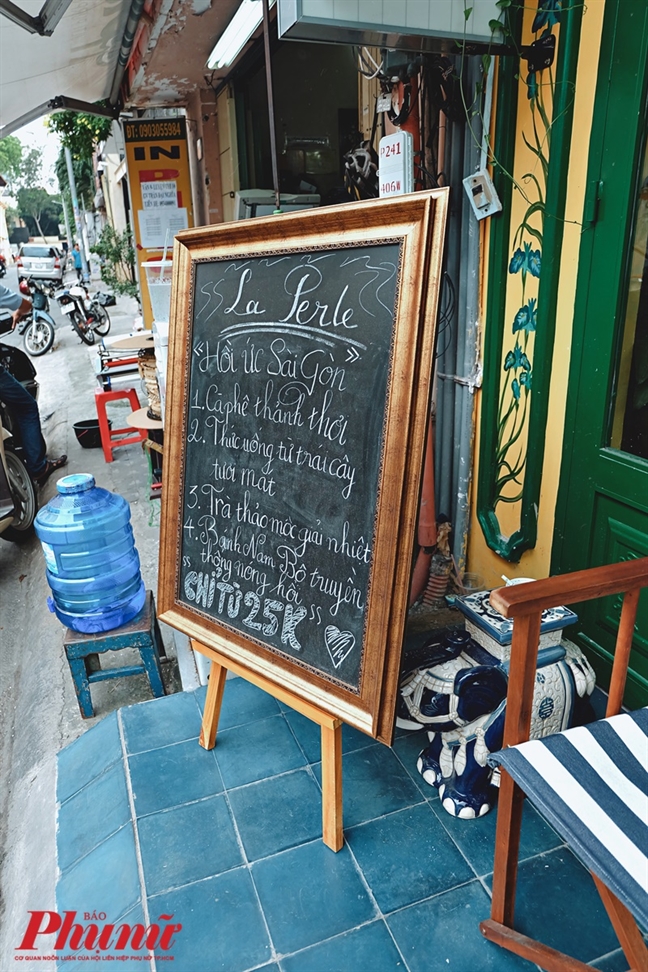 ĐT: 0903055984
IN
P 241
406W
La Perle
"Hồi Ức Sài Gòn"
1. Cà phê thảnh thơi
2. Thức uống từ trái cây
tươi mát
3. Trà thảo mộc giải nhiệt
4. Bánh Nam Bộ truyền
thống nóng hổi
CHỈ TỪ 25K
BÁO
Phụ nữ
CƠ QUAN NGÔN LUẬN CỦA HỘI LIÊN HIỆP PHỤ NỮ TP.HCM